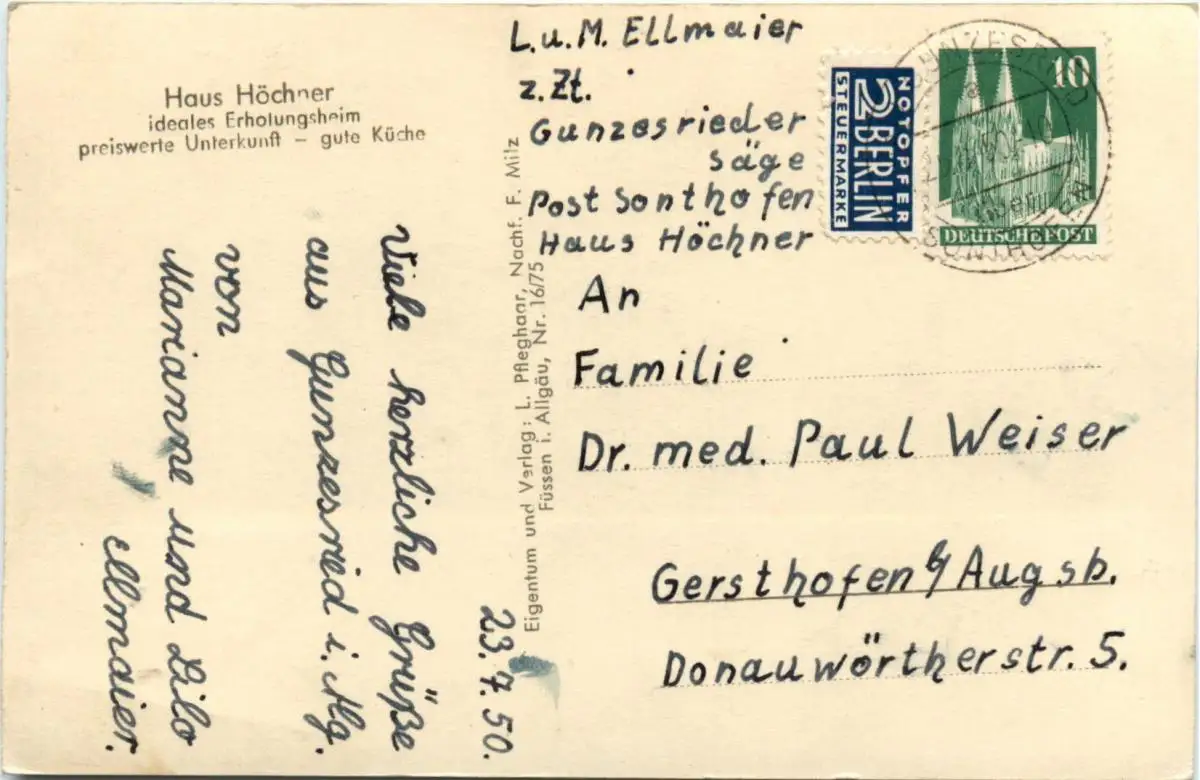 Haus Höchner
ideales Erholungsheim
preiswerte Unterkunft – gute Küche
23.7.50.
Viele herzliche Grüße
aus Gunzesried i. Allg.
von
Marianne und Lilo
Ellmaier.
Eigentum und Verlag: L. Pfleghaar, Nachf. F. Milz
Füssen i. Allgäu, Nr. 16/75
L.u.M. Ellmaier
z.Zt.
Gunzesrieder
Säge
Post Sonthofen
Haus Höchner
NOTOPFER
2 BERLIN
STEUERMARKE
10
DEUTSCHE POST
GUNZESRIED
SONTHOFEN
An
Familie
Dr. med. Paul Weiser
Gersthofen b/Augsb.
Donauwörtherstr. 5.